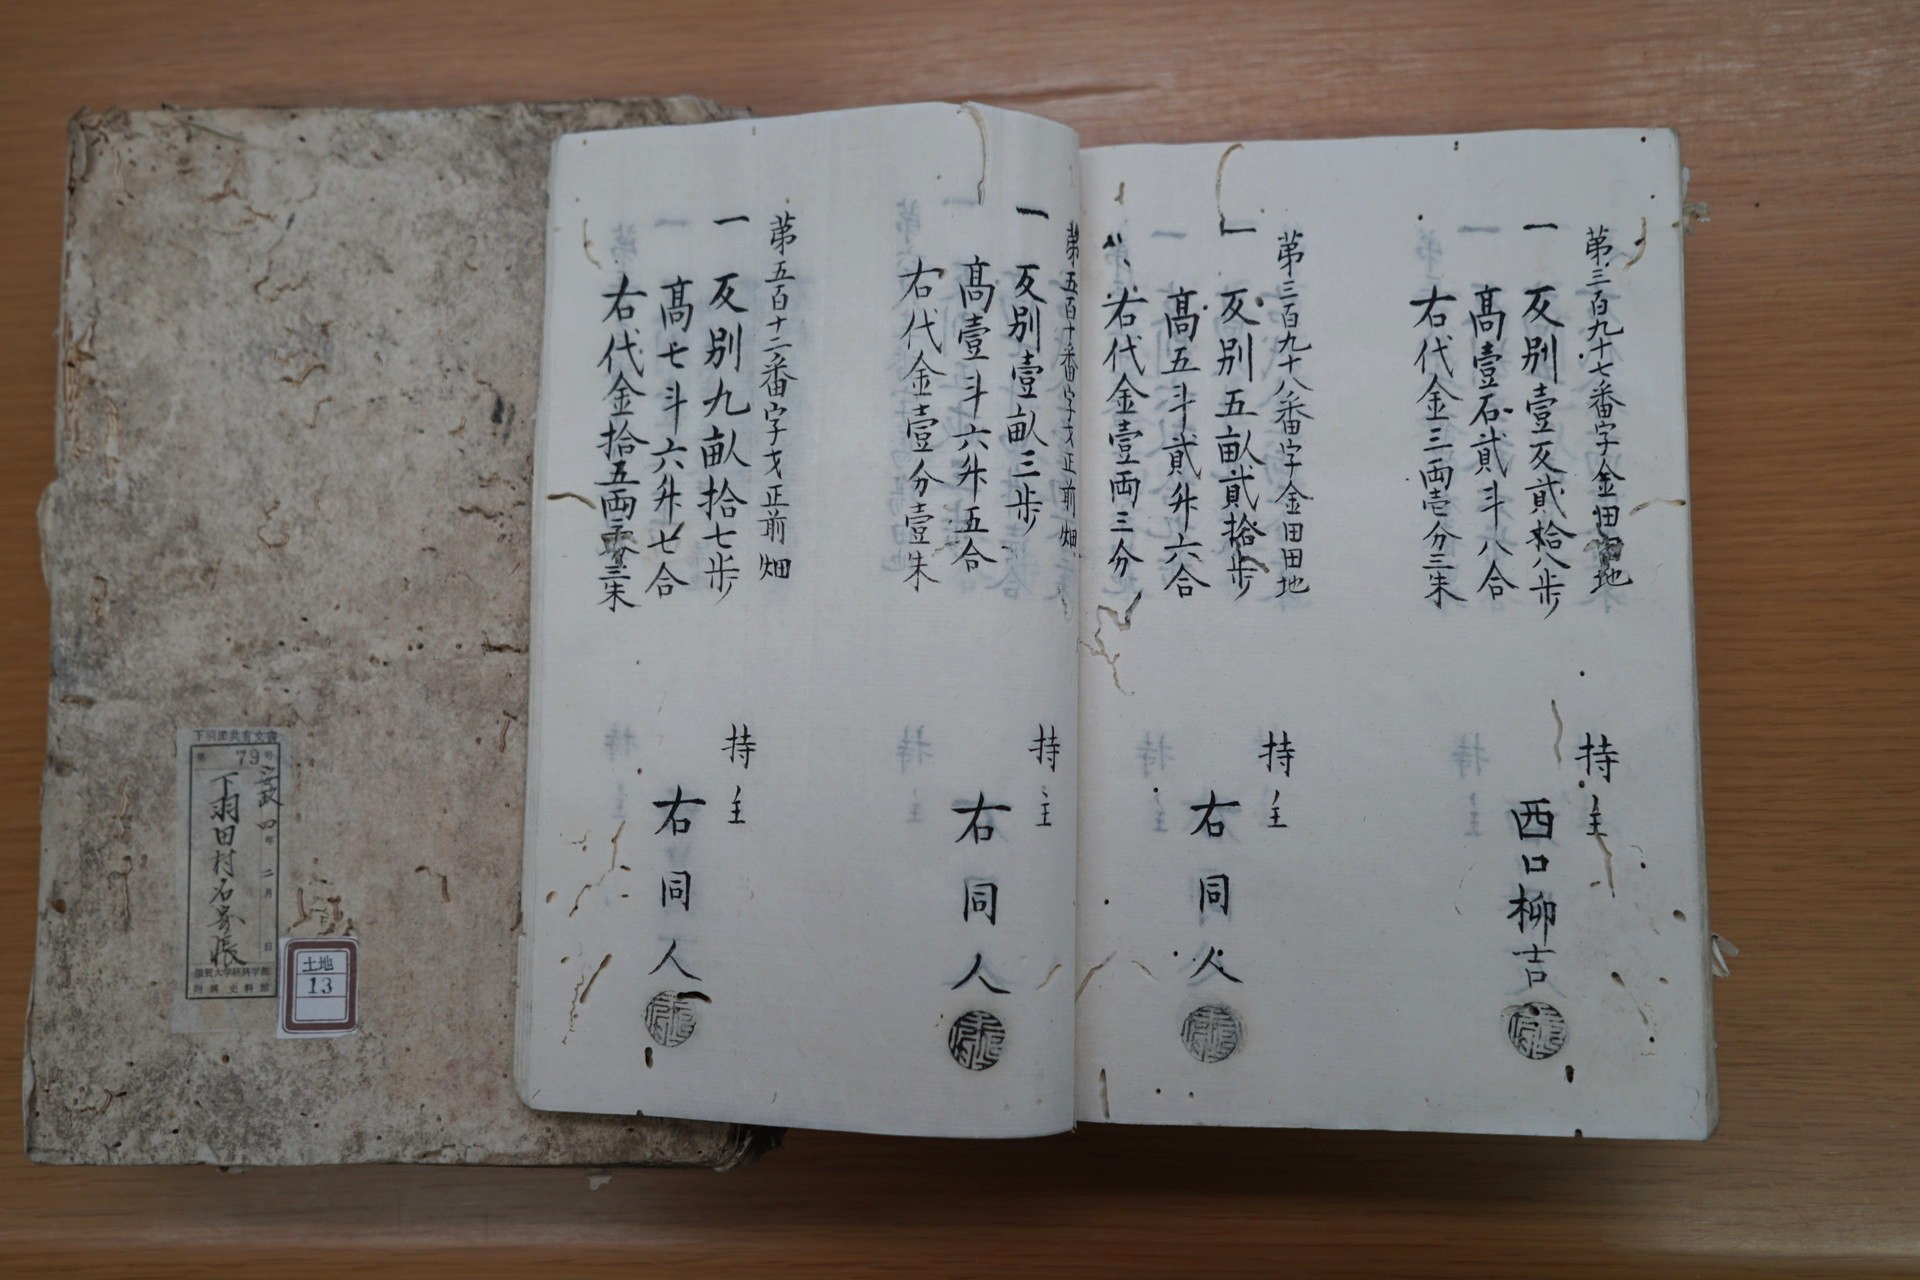 第三百九十七番字金田地
一 反別壹反貳拾八歩
高壹石貳斗八合
右代金三両壱分三朱
持主
西口柳吉
第三百九十八番字金田田地
一 反別五畝貳拾歩
高五斗貳升六合
右代金壹両三分
持主
右同人
第五百十番字才正前畑
一 反別壹畝三歩
高壹斗六升五合
右代金壹分壹朱
持主
右同人
第五百十二番字才正前畑
一 反別九畝拾七歩
高七斗六升七合
右代金拾五両三朱
持主
右同人
下羽田共有文書
第79号
安政四年二月 日
下羽田村名寄帳
滋賀大学経済学部
附属史料館
土地
13